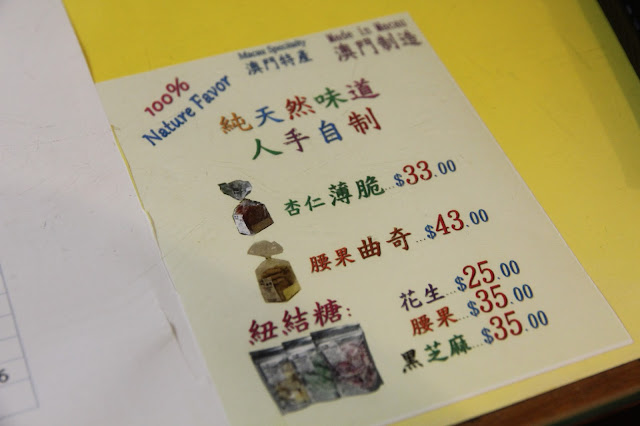 100%
Nature Favor
Macau Specialty
澳門特產
Made in Macau
澳門制造
純天然味道
人手自制
杏仁薄脆...$33.00
腰果曲奇...$43.00
紐結糖:
花生...$25.00
腰果...$35.00
黑芝麻..$35.00
6